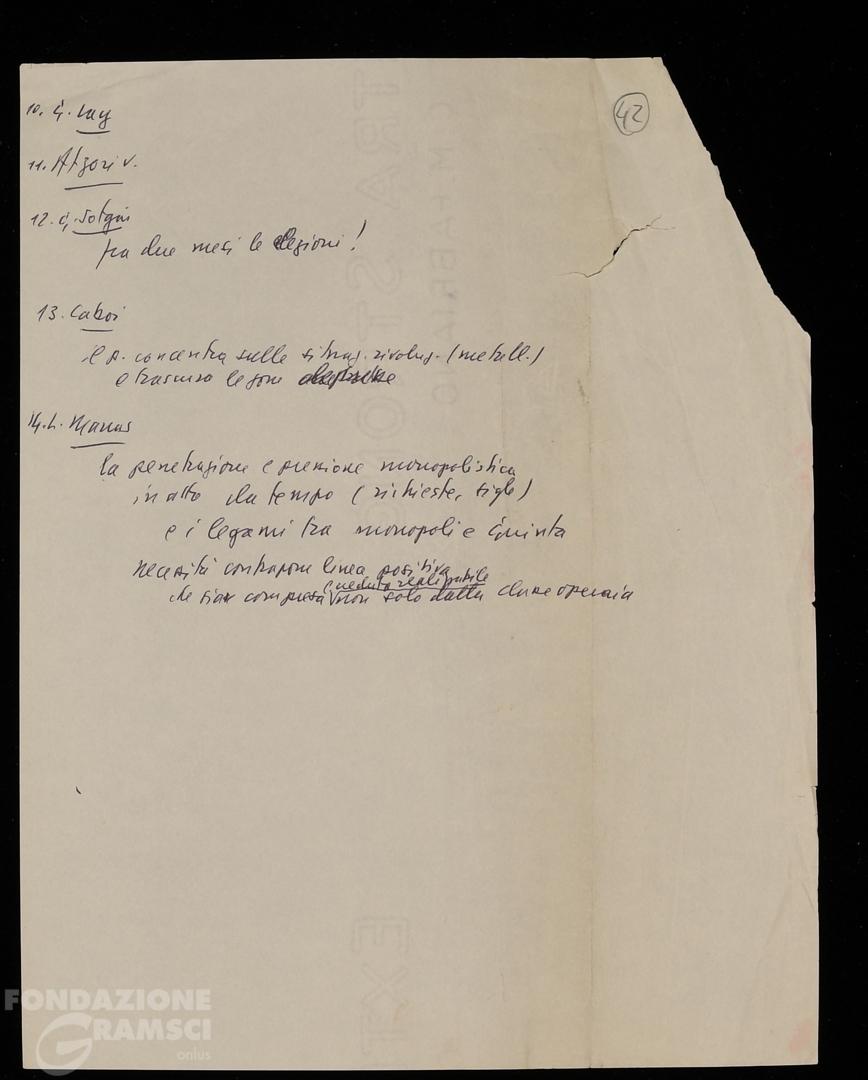 42
10. G. Lay
11. Atzori V.
12. G. Sotgiu
fra due mesi le elezioni!
13. Caboi
il p. concentra sulle situaz. rivoluz. (metall.)
e trascura le zone
14. L. Marras
la penetrazione e pressione monopolistica
in atto da tempo (richieste, sigle)
e i legami tra monopoli e Giunta
necessità contrapporre linea positiva
e veduta realizzabile
che sia compresa non solo dalla classe operaia
FONDAZIONE
GRAMSCI
onlus